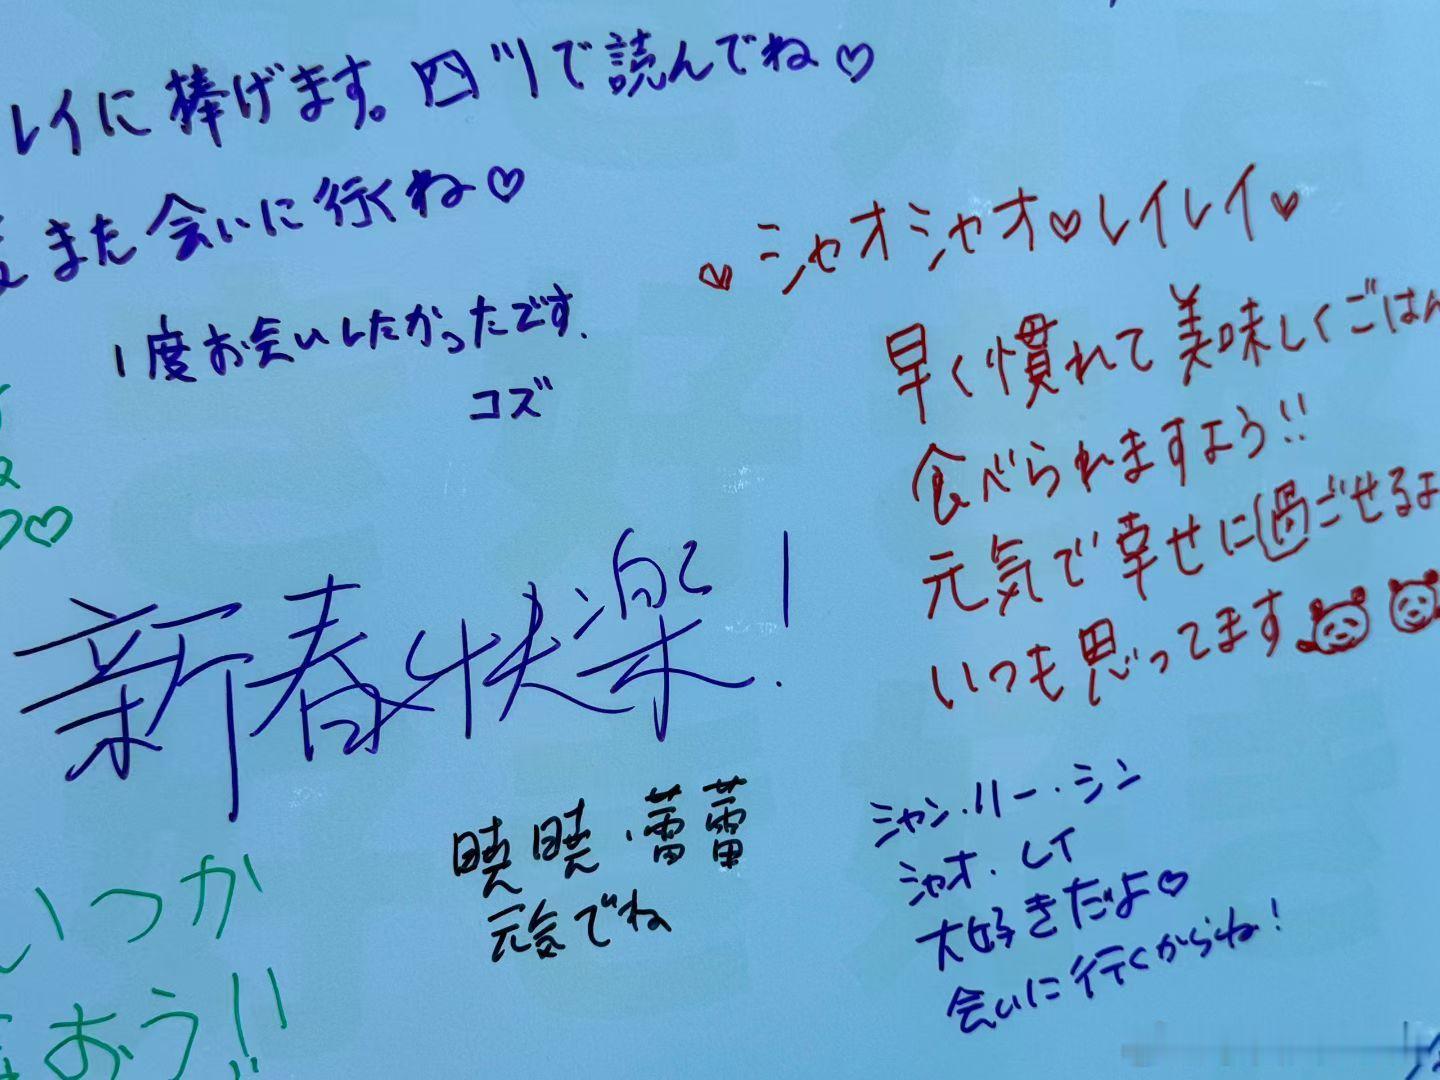 レイに捧げます。四川で読んでね♡
また会いに行くね♡
1度お会いしたかったです.
コズ
♡シャオシャオ♡レイレイ♡
早く慣れて美味しくごはん
食べられますよう!!
元気で幸せに過ごせるよ
いつも思ってます
新春快楽!
暁暁・蕾蕾
元気でね
シャン・リー・シン
シャオ・レイ
大好きだよ♡
会いに行くからね!
いつか
おう!!